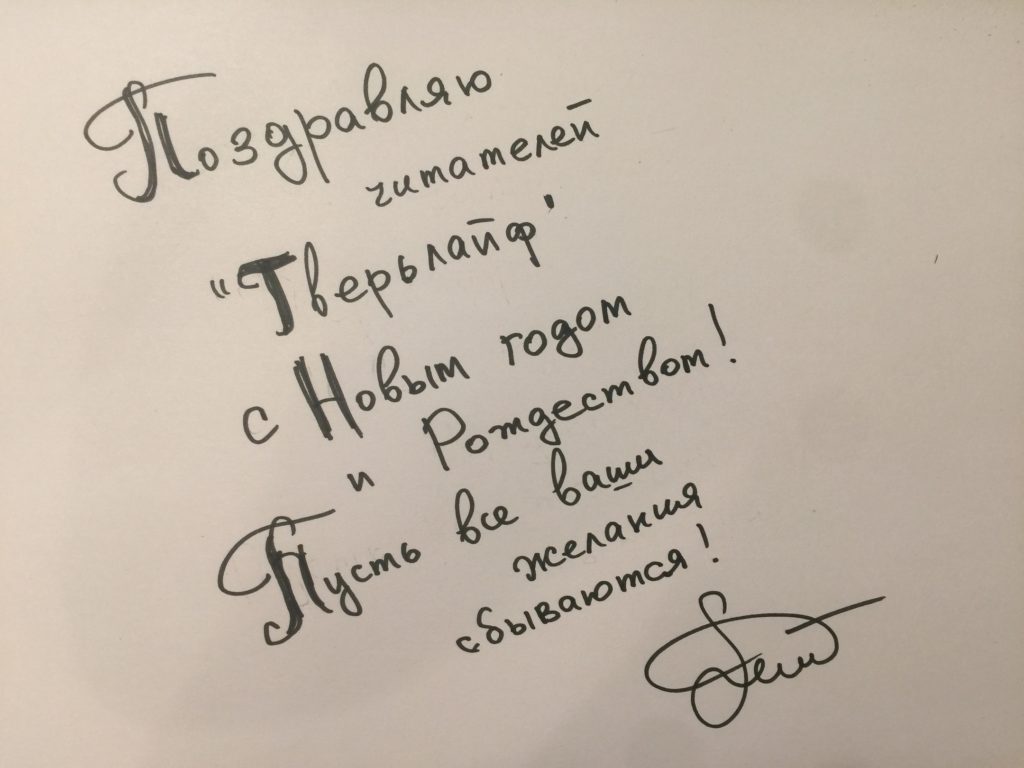 Поздравляю
читателей
"Тверьлайф"
с Новым годом
и Рождеством!
Пусть все ваши
желания
сбываются!